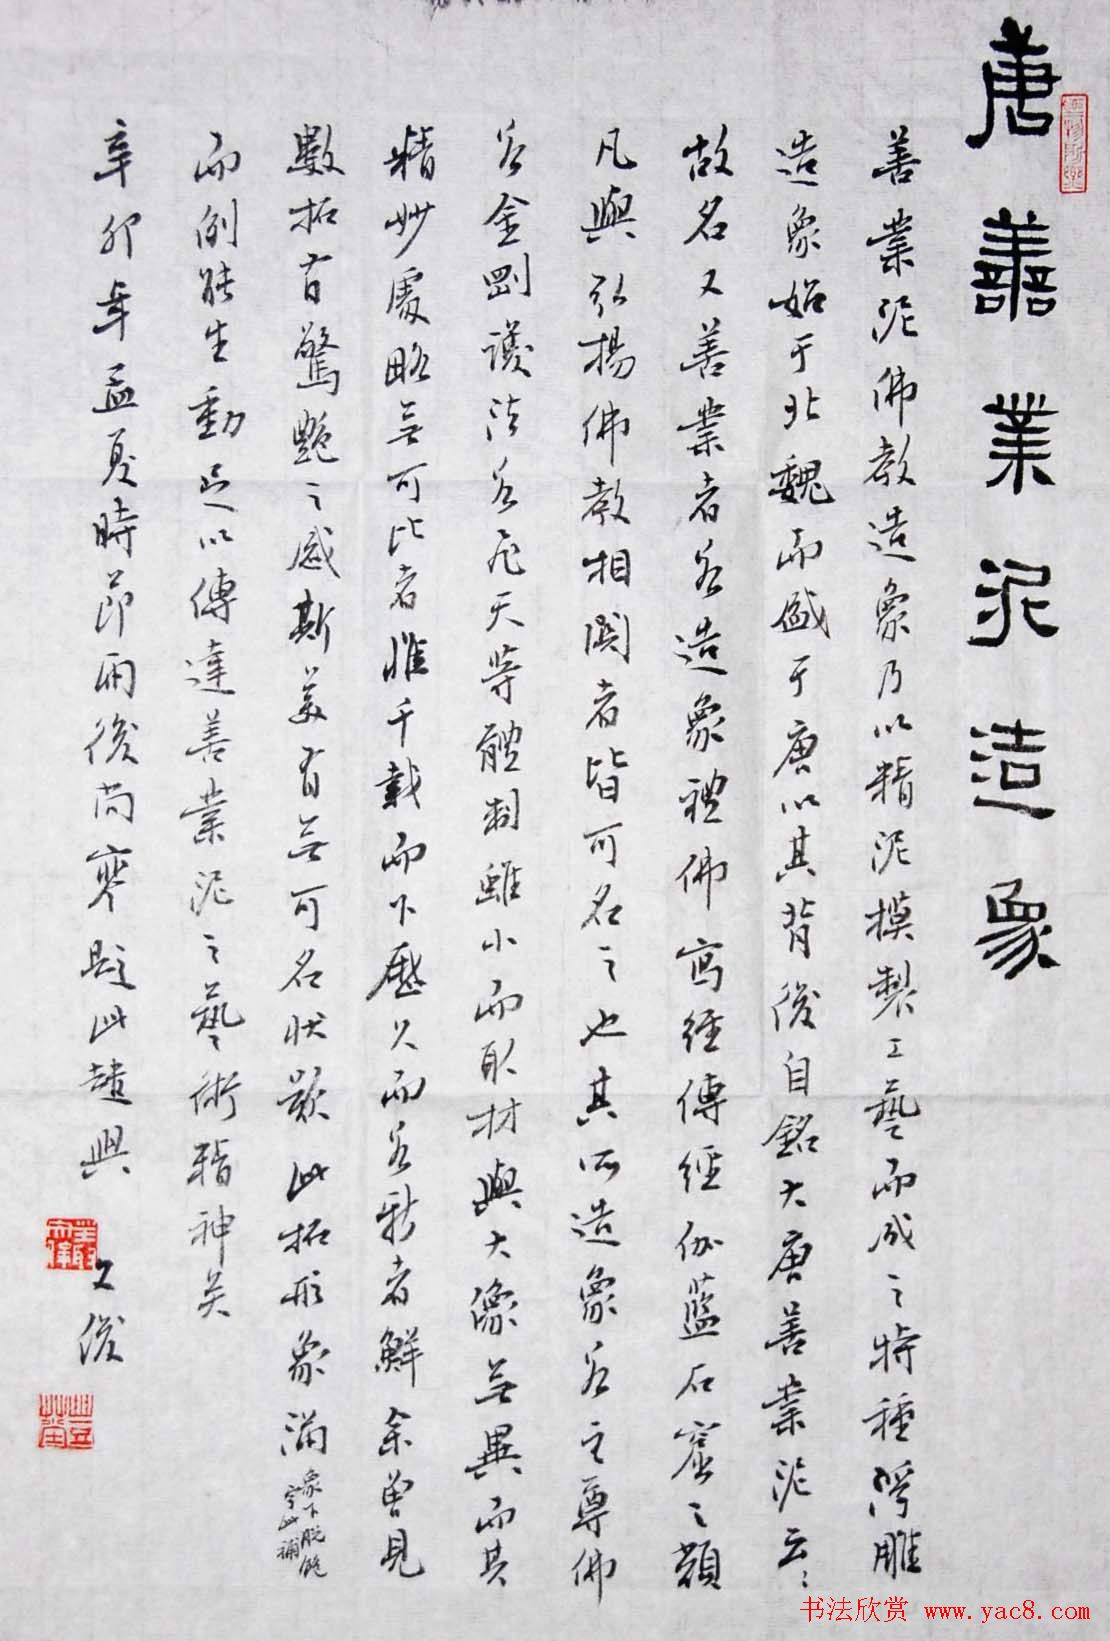 唐善業泥造象
善業泥佛教造象乃以精泥摸製工藝而成之特種浮雕
造象始于北魏而盛于唐以其背後自銘大唐善業泥云云
故名又善業者若造象禮佛寫經傳經伽藍石窟之類
凡與弘揚佛教相關者皆可名之也其所造象若主尊佛
若金剛護法若飛天等體制雖小而取材與大像無異而其
精妙處略無可比者惟千載而下歷久而若新者鮮余曾見
數拓有驚艷之感斯美有無可名狀歎此拓形象滿
象下脫飽字此補
而例能生動足以傳達善業泥之藝術精神矣
辛卯年孟夏時節雨後尚寒題此遣興
文俊
书法欣赏 www.yac8.com